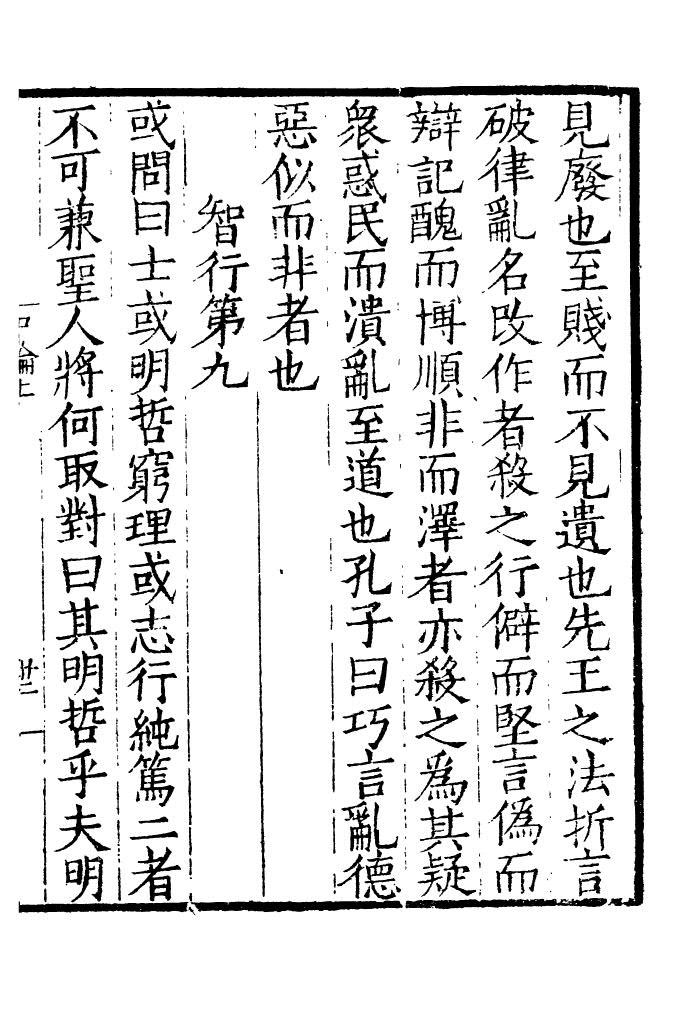 見廢也至賤而不見遺也先王之法折言
破律亂名改作者殺之行僻而堅言偽而
辯記醜而博順非而澤者亦殺之爲其疑
衆惑民而潰亂至道也孔子曰巧言亂德
惡似而非者也
智行第九
或問曰士或明哲窮理或志行純篤二者
不可兼聖人將何取對曰其明哲乎夫明